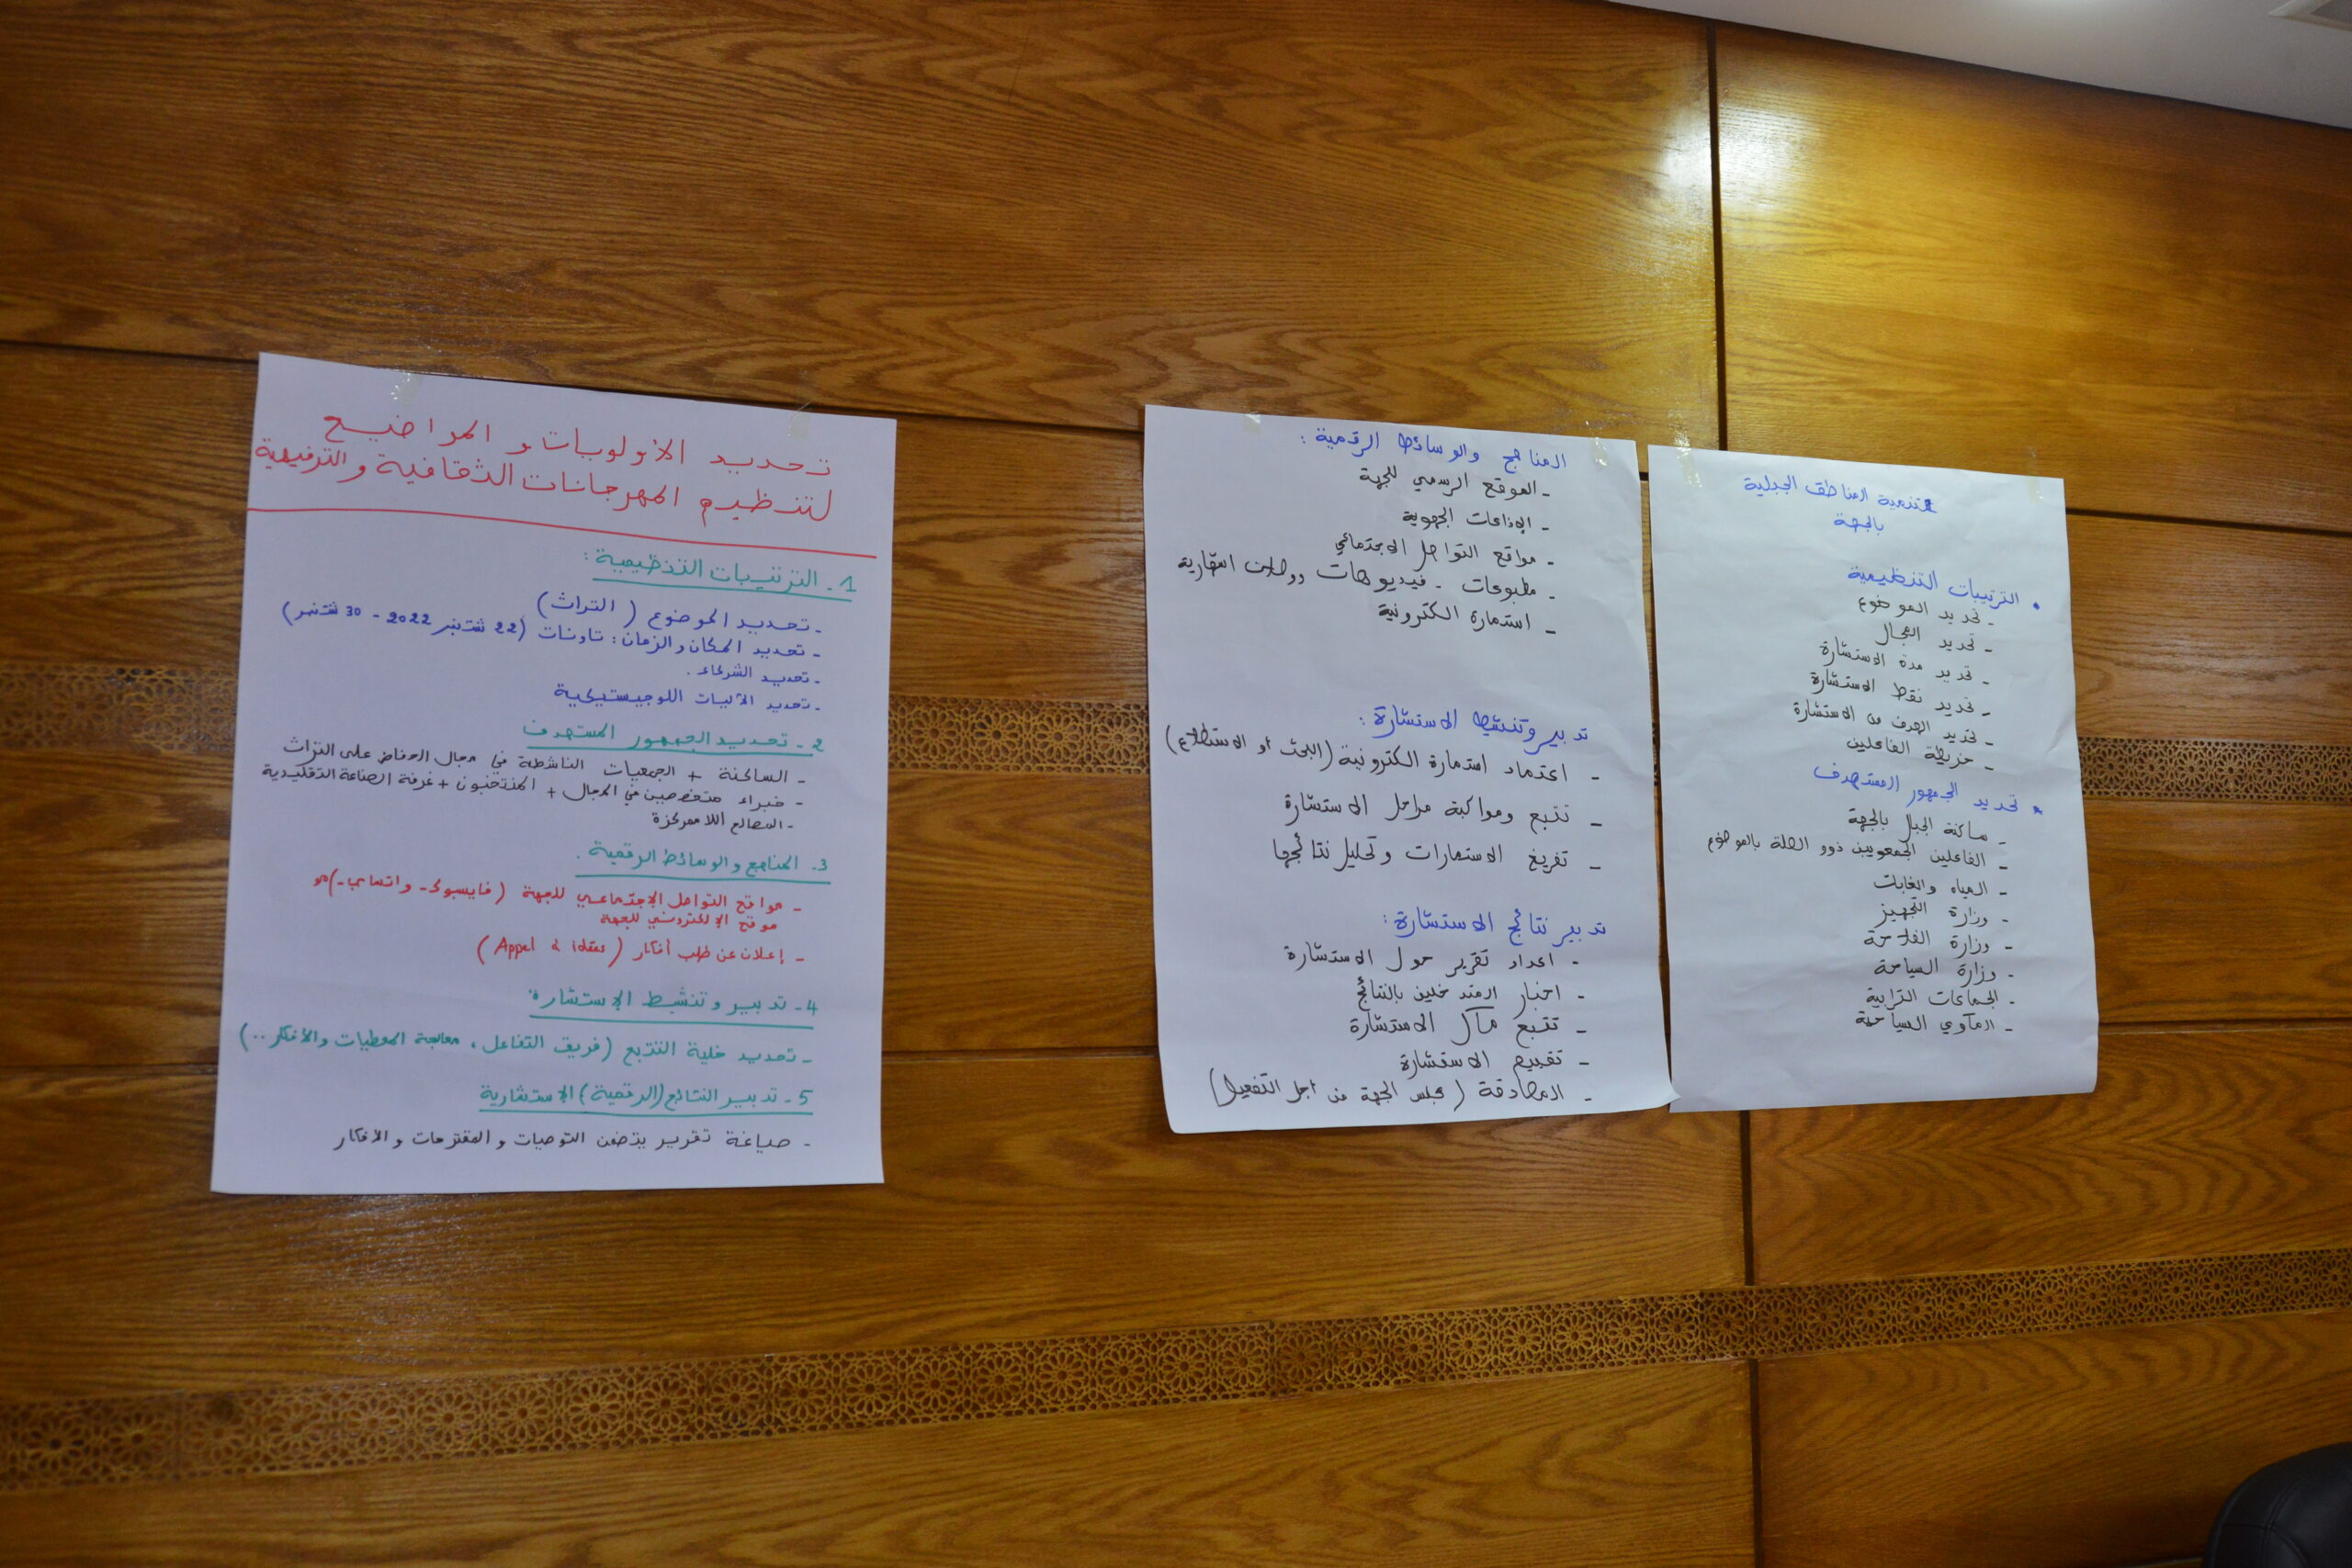 تحديد الأولويات و المواضيع
لتنظيم المهرجانات الثقافية والترفيهية
1 - الترتيبات التنظيمية :
- تحديد الموضوع ( التراث )
- تحديد المكان والزمان : تاونات (22 شتنبر 2022 - 30 شتنبر)
- تحديد الشركاء .
- تحديد الآليات اللوجيستيكية
2 - تحديد الجمهور المستهدف
- الساكنة + الجمعيات الناشطة في مجال الحفاظ على التراث
- خبراء متخصصين في المجال + المنتخبون + غرفة الصناعة التقليدية
- المصالح اللاممركزة
3 - المناهج والوسائط الرقمية .
- مواقع التواصل الإجتماعي للجهة ( فايسبوك - واتساب -)
موقع الإلكتروني للجهة
- إعلان عن طلب أفكار ( Appel à idées )
4 - تدبير وتنشيط الإستشارة :
- تحديد خلية التتبع (فريق التفاعل ، معالجة المعطيات والأفكار ..)
5 - تدبير النتائج (الرقمية) الإستشارية
- صياغة تقرير يتضمن التوصيات و المقترحات و الأفكار
تنمية المناطق الجبلية
بالجهة
• الترتيبات التنظيمية
- تحديد الموضوع
- تحديد المجال
- تحديد مدة الاستشارة
- تحديد نقط الاستشارة
- تحديد الهدف من الاستشارة
- خريطة الفاعلين
• تحديد الجمهور المستهدف
- ساكنة الجبال بالجهة
- الفاعلين الجمعويين ذوو الصلة بالموضوع
- المياه والغابات
- وزارة التجهيز
- وزارة الفلاحة
- وزارة السياحة
- الجماعات الترابية
- المآوي السياحية
المناهج والوسائط الرقمية :
- الموقع الرسمي للجهة
- الإذاعات الجهوية
- مواقع التواصل الاجتماعي
- مطبوعات - فيديوهات ووصلات اشهارية
- استمارة الكترونية
تدبير وتنشيط الاستشارة :
- اعتماد استمارة الكترونية (البحث أو الاستطلاع)
- تتبع ومواكبة مراحل الاستشارة
- تفريغ الاستمارات وتحليل نتائجها
تدبير نتائج الاستشارة :
- اعداد تقرير حول الاستشارة
- اخبار المتدخلين بالنتائج
- تتبع مآل الاستشارة
- تقييم الاستشارة
- المصادقة (مجلس الجهة من اجل التفعيل)